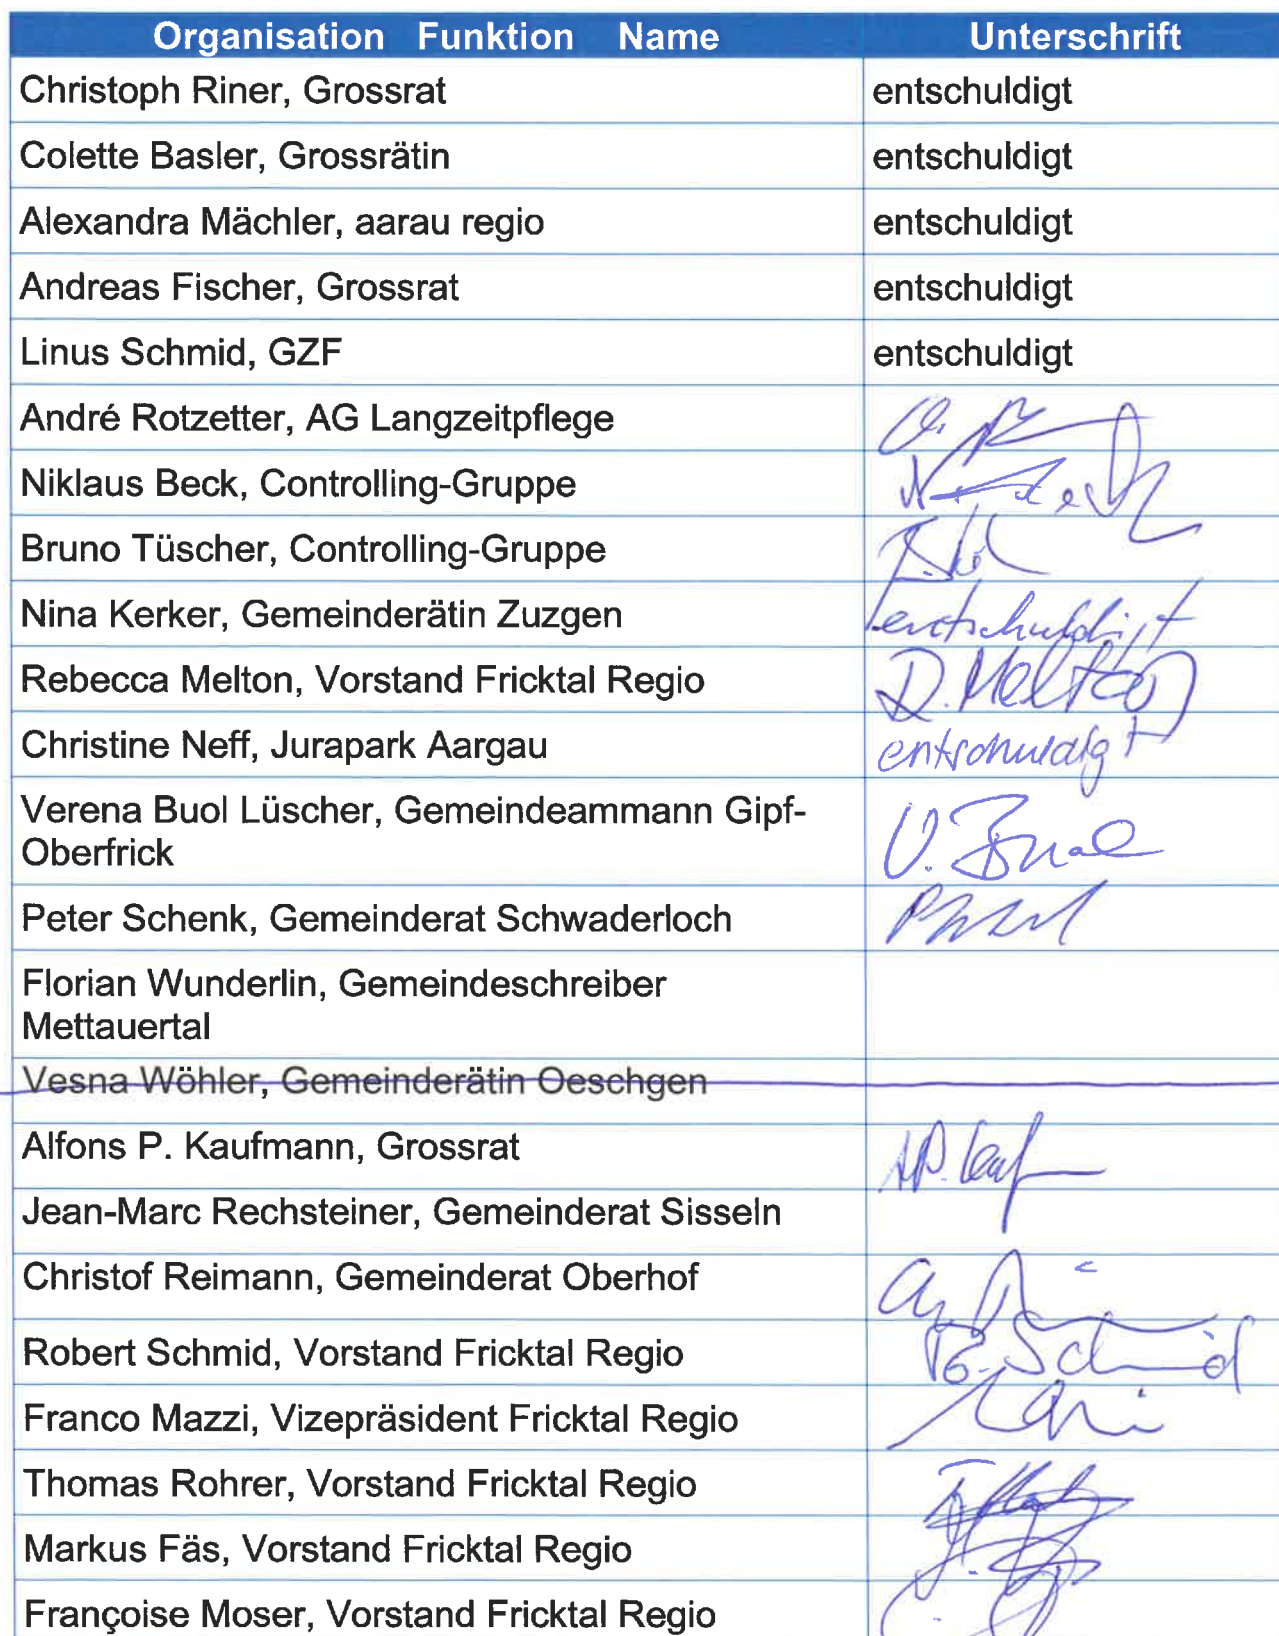 Organisation Funktion Name Unterschrift
Christoph Riner, Grossrat entschuldigt
Colette Basler, Grossrätin entschuldigt
Alexandra Mächler, aarau regio entschuldigt
Andreas Fischer, Grossrat entschuldigt
Linus Schmid, GZF entschuldigt
André Rotzetter, AG Langzeitpflege
Niklaus Beck, Controlling-Gruppe
Bruno Tüscher, Controlling-Gruppe
Nina Kerker, Gemeinderätin Zuzgen entschuldigt
Rebecca Melton, Vorstand Fricktal Regio R. Melton
Christine Neff, Jurapark Aargau entschuldigt
Verena Buol Lüscher, Gemeindeammann Gipf-
Oberfrick V. Buol
Peter Schenk, Gemeinderat Schwaderloch
Florian Wunderlin, Gemeindeschreiber
Mettauertal
Vesna Wöhler, Gemeinderätin Oeschgen
Alfons P. Kaufmann, Grossrat
Jean-Marc Rechsteiner, Gemeinderat Sisseln
Christof Reimann, Gemeinderat Oberhof
Robert Schmid, Vorstand Fricktal Regio Schmid
Franco Mazzi, Vizepräsident Fricktal Regio
Thomas Rohrer, Vorstand Fricktal Regio
Markus Fäs, Vorstand Fricktal Regio
Françoise Moser, Vorstand Fricktal Regio